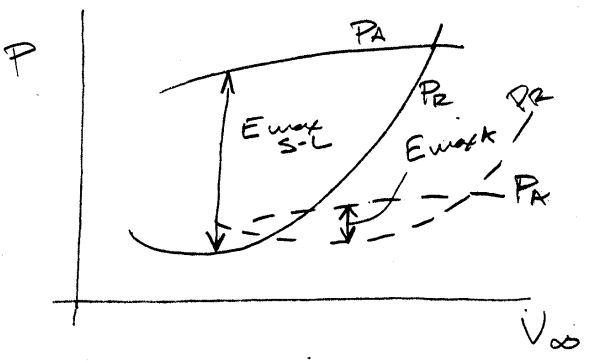 P
P_A
P_R
E max
S-L
E max A
P_R
P_A
V_∞